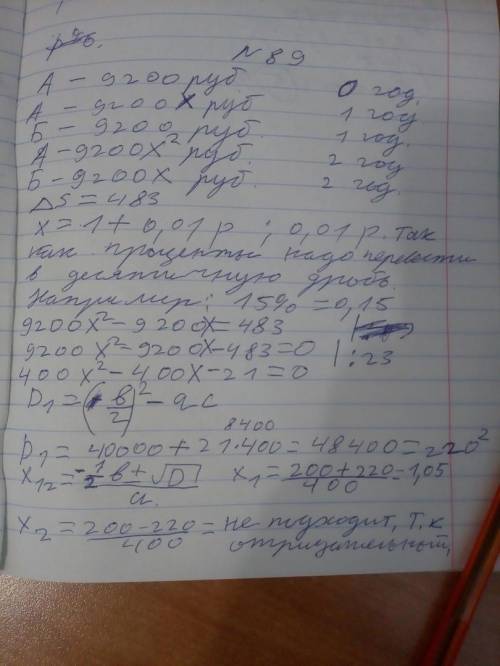 N89
А - 9200 руб 0 год.
А - 9200x руб 1 год
Б - 9200 руб. 1 год.
А - 9200x² руб. 2 год
Б - 9200x руб. 2 год.
ΔS = 483
x = 1 + 0,01p ; 0,01p. так
как проценты надо перевести
в десятичную дробь.
Например: 15% = 0,15
9200x² - 9200x = 483
9200x² - 9200x - 483 = 0 | : 23
400x² - 400x - 21 = 0
D₁ = (-в/2)² - ac
8400
D₁ = 40000 + 21·400 = 48400 = 220²
x₁₂ = -½в + √D / a. x₁ = 200 + 220 / 400 = 1,05
x₂ = 200 - 220 / 400 = не подходит, т.к
отрицательный,